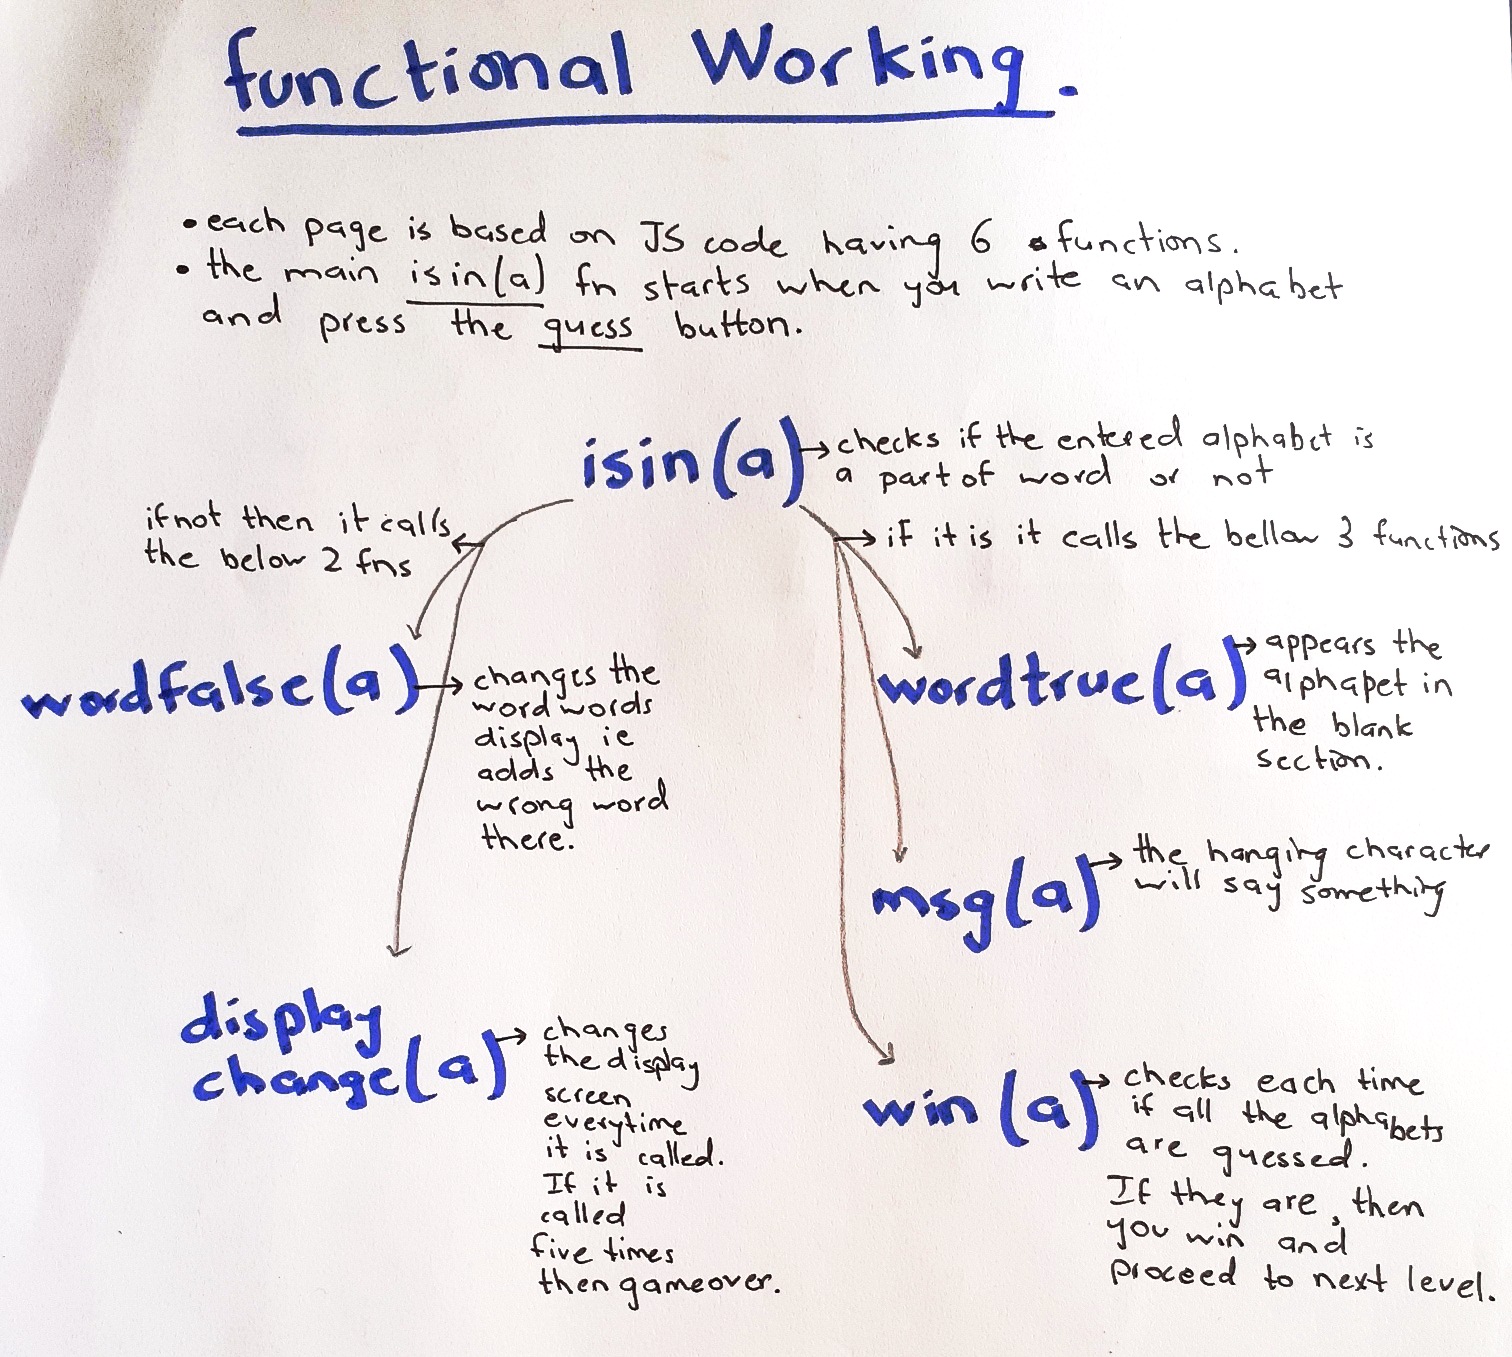 functional Working.
• each page is based on JS code having 6 functions.
• the main isin(a) fn starts when you write an alphabet
and press the guess button.
isin(a) → checks if the entered alphabet is
a part of word or not
if not then it calls
the below 2 fns
→ if it is it calls the bellow 3 functions
wordfalse(a) → changes the
word words
display ie
adds the
wrong word
there.
wordtrue(a) → appears the
alphapet in
the blank
section.
msg(a) → the hanging character
will say something
display
change(a) → changes
the display
screen
everytime
it is called.
If it is
called
five times
then gameover.
win(a) → checks each time
if all the alphabets
are guessed.
If they are, then
you win and
proceed to next level.